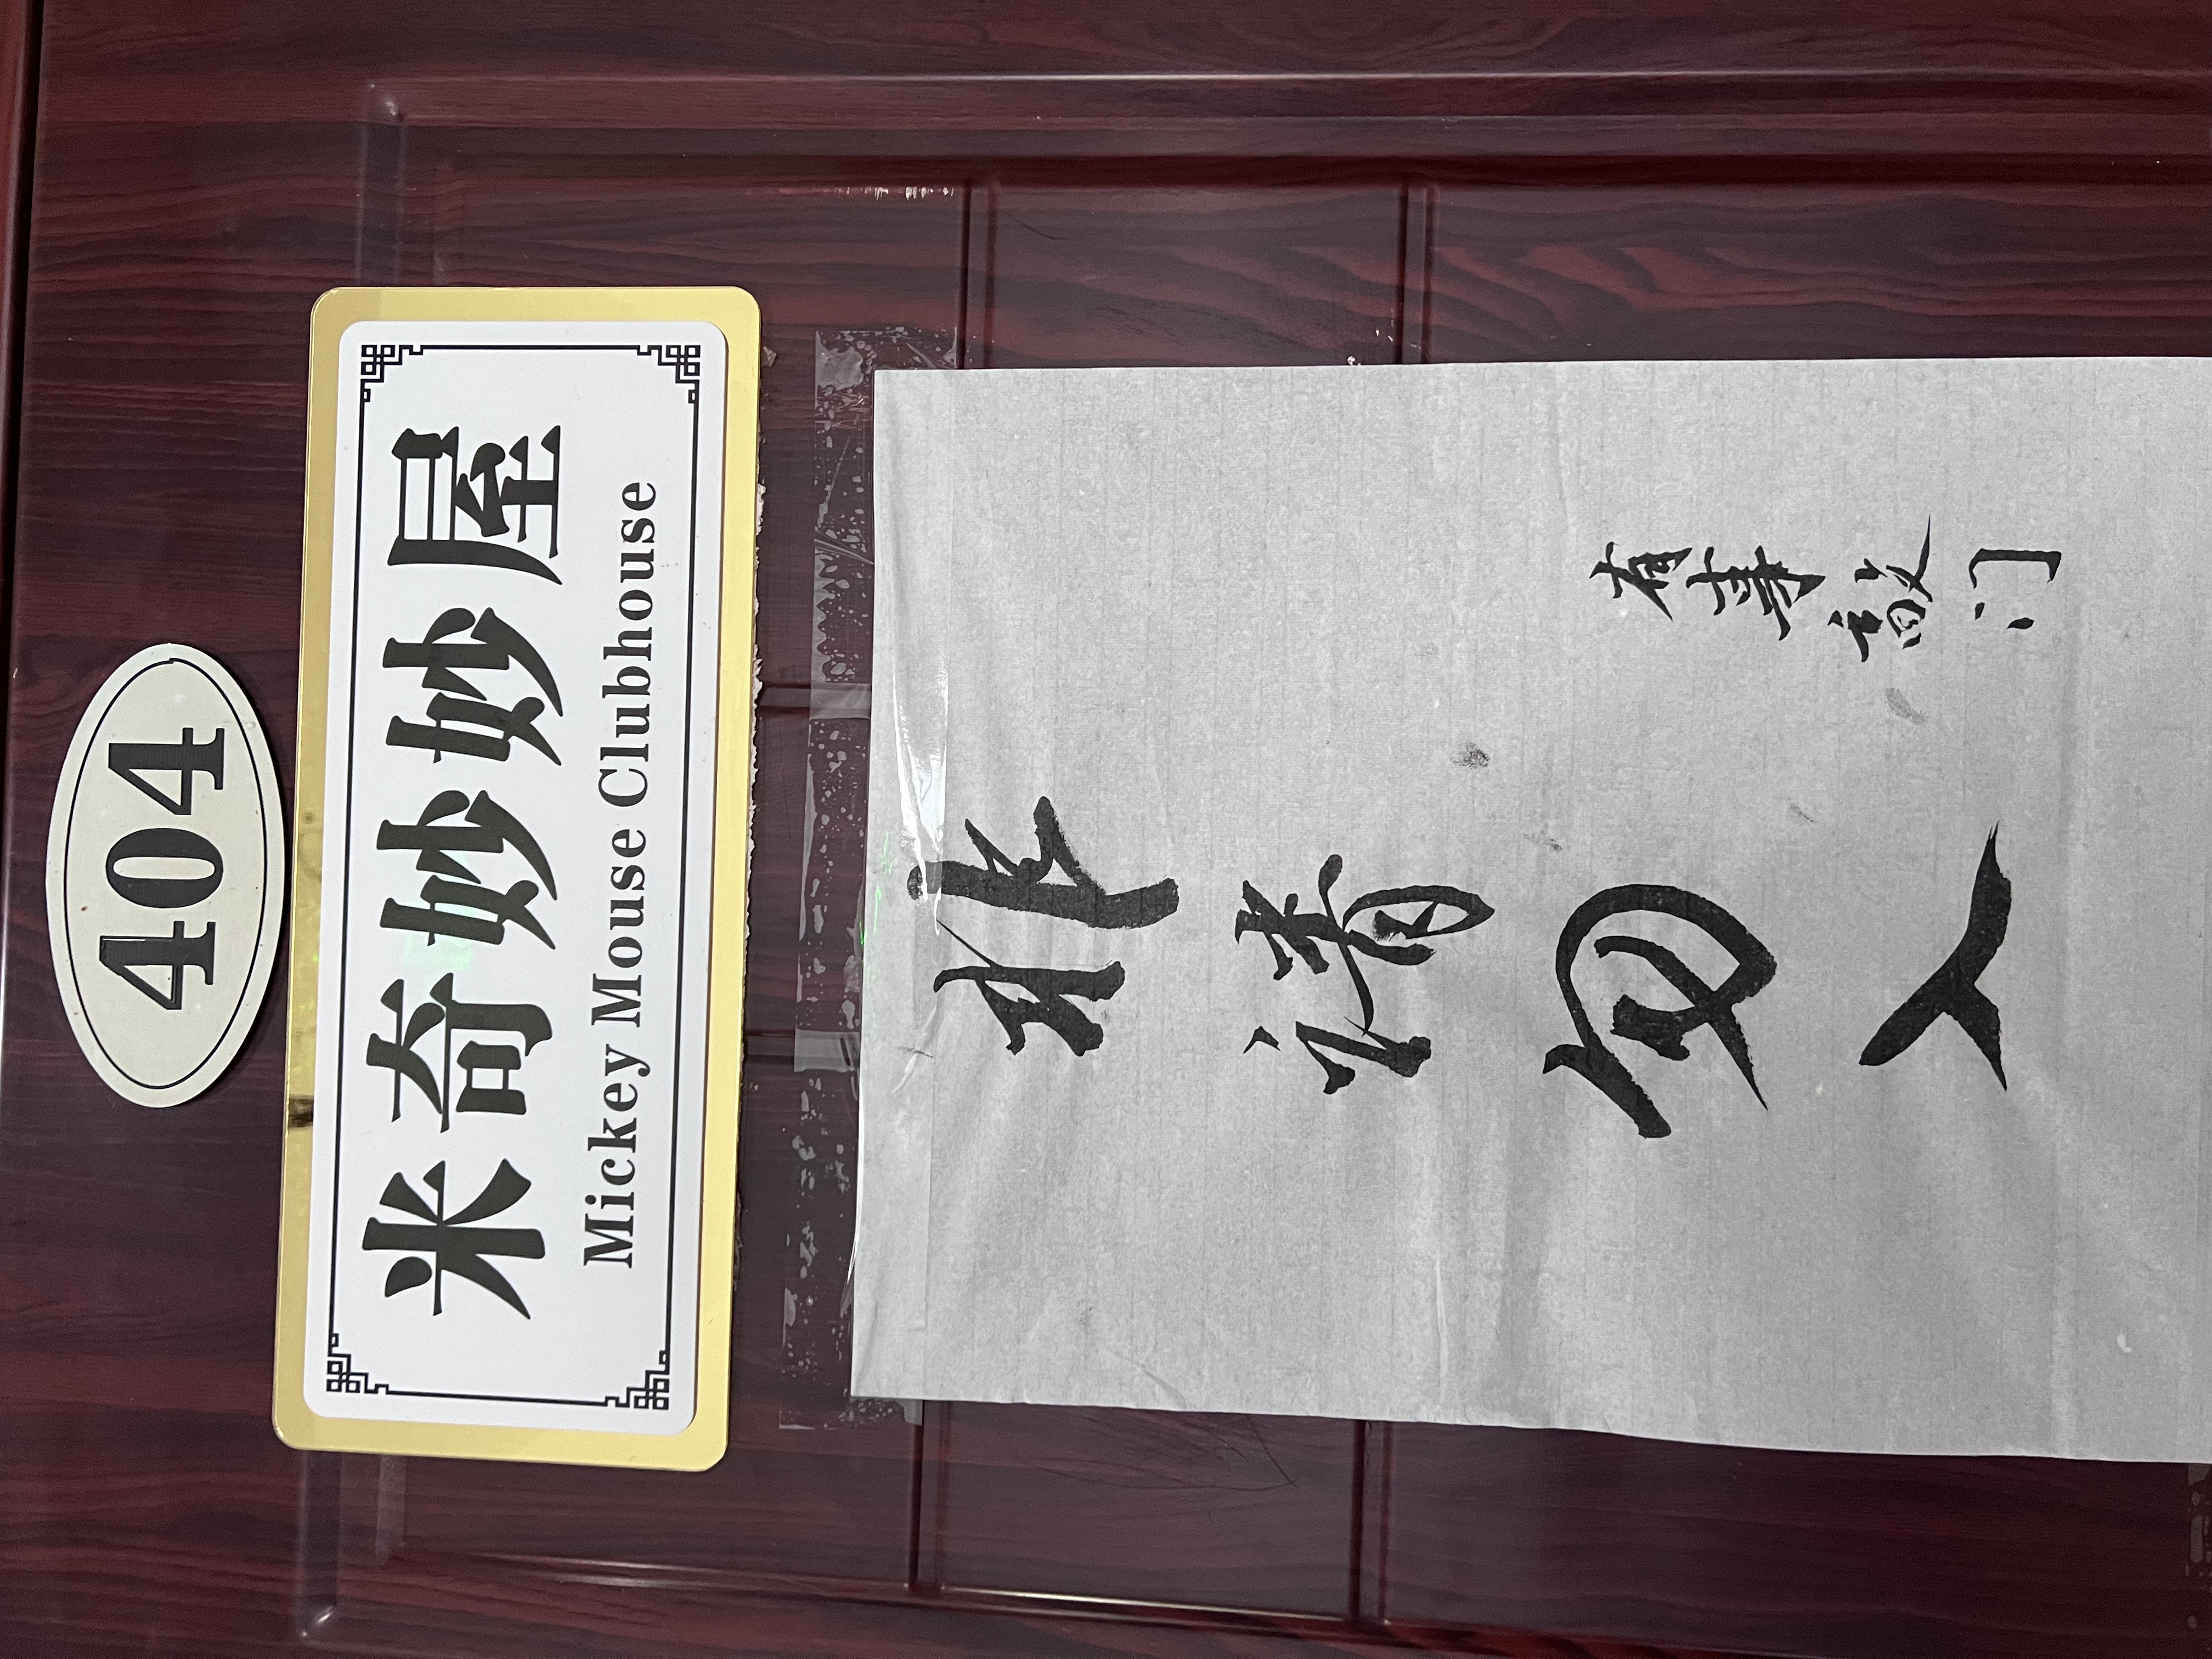 404
米奇妙妙屋
Mickey Mouse Clubhouse
非请勿入
有事敲门